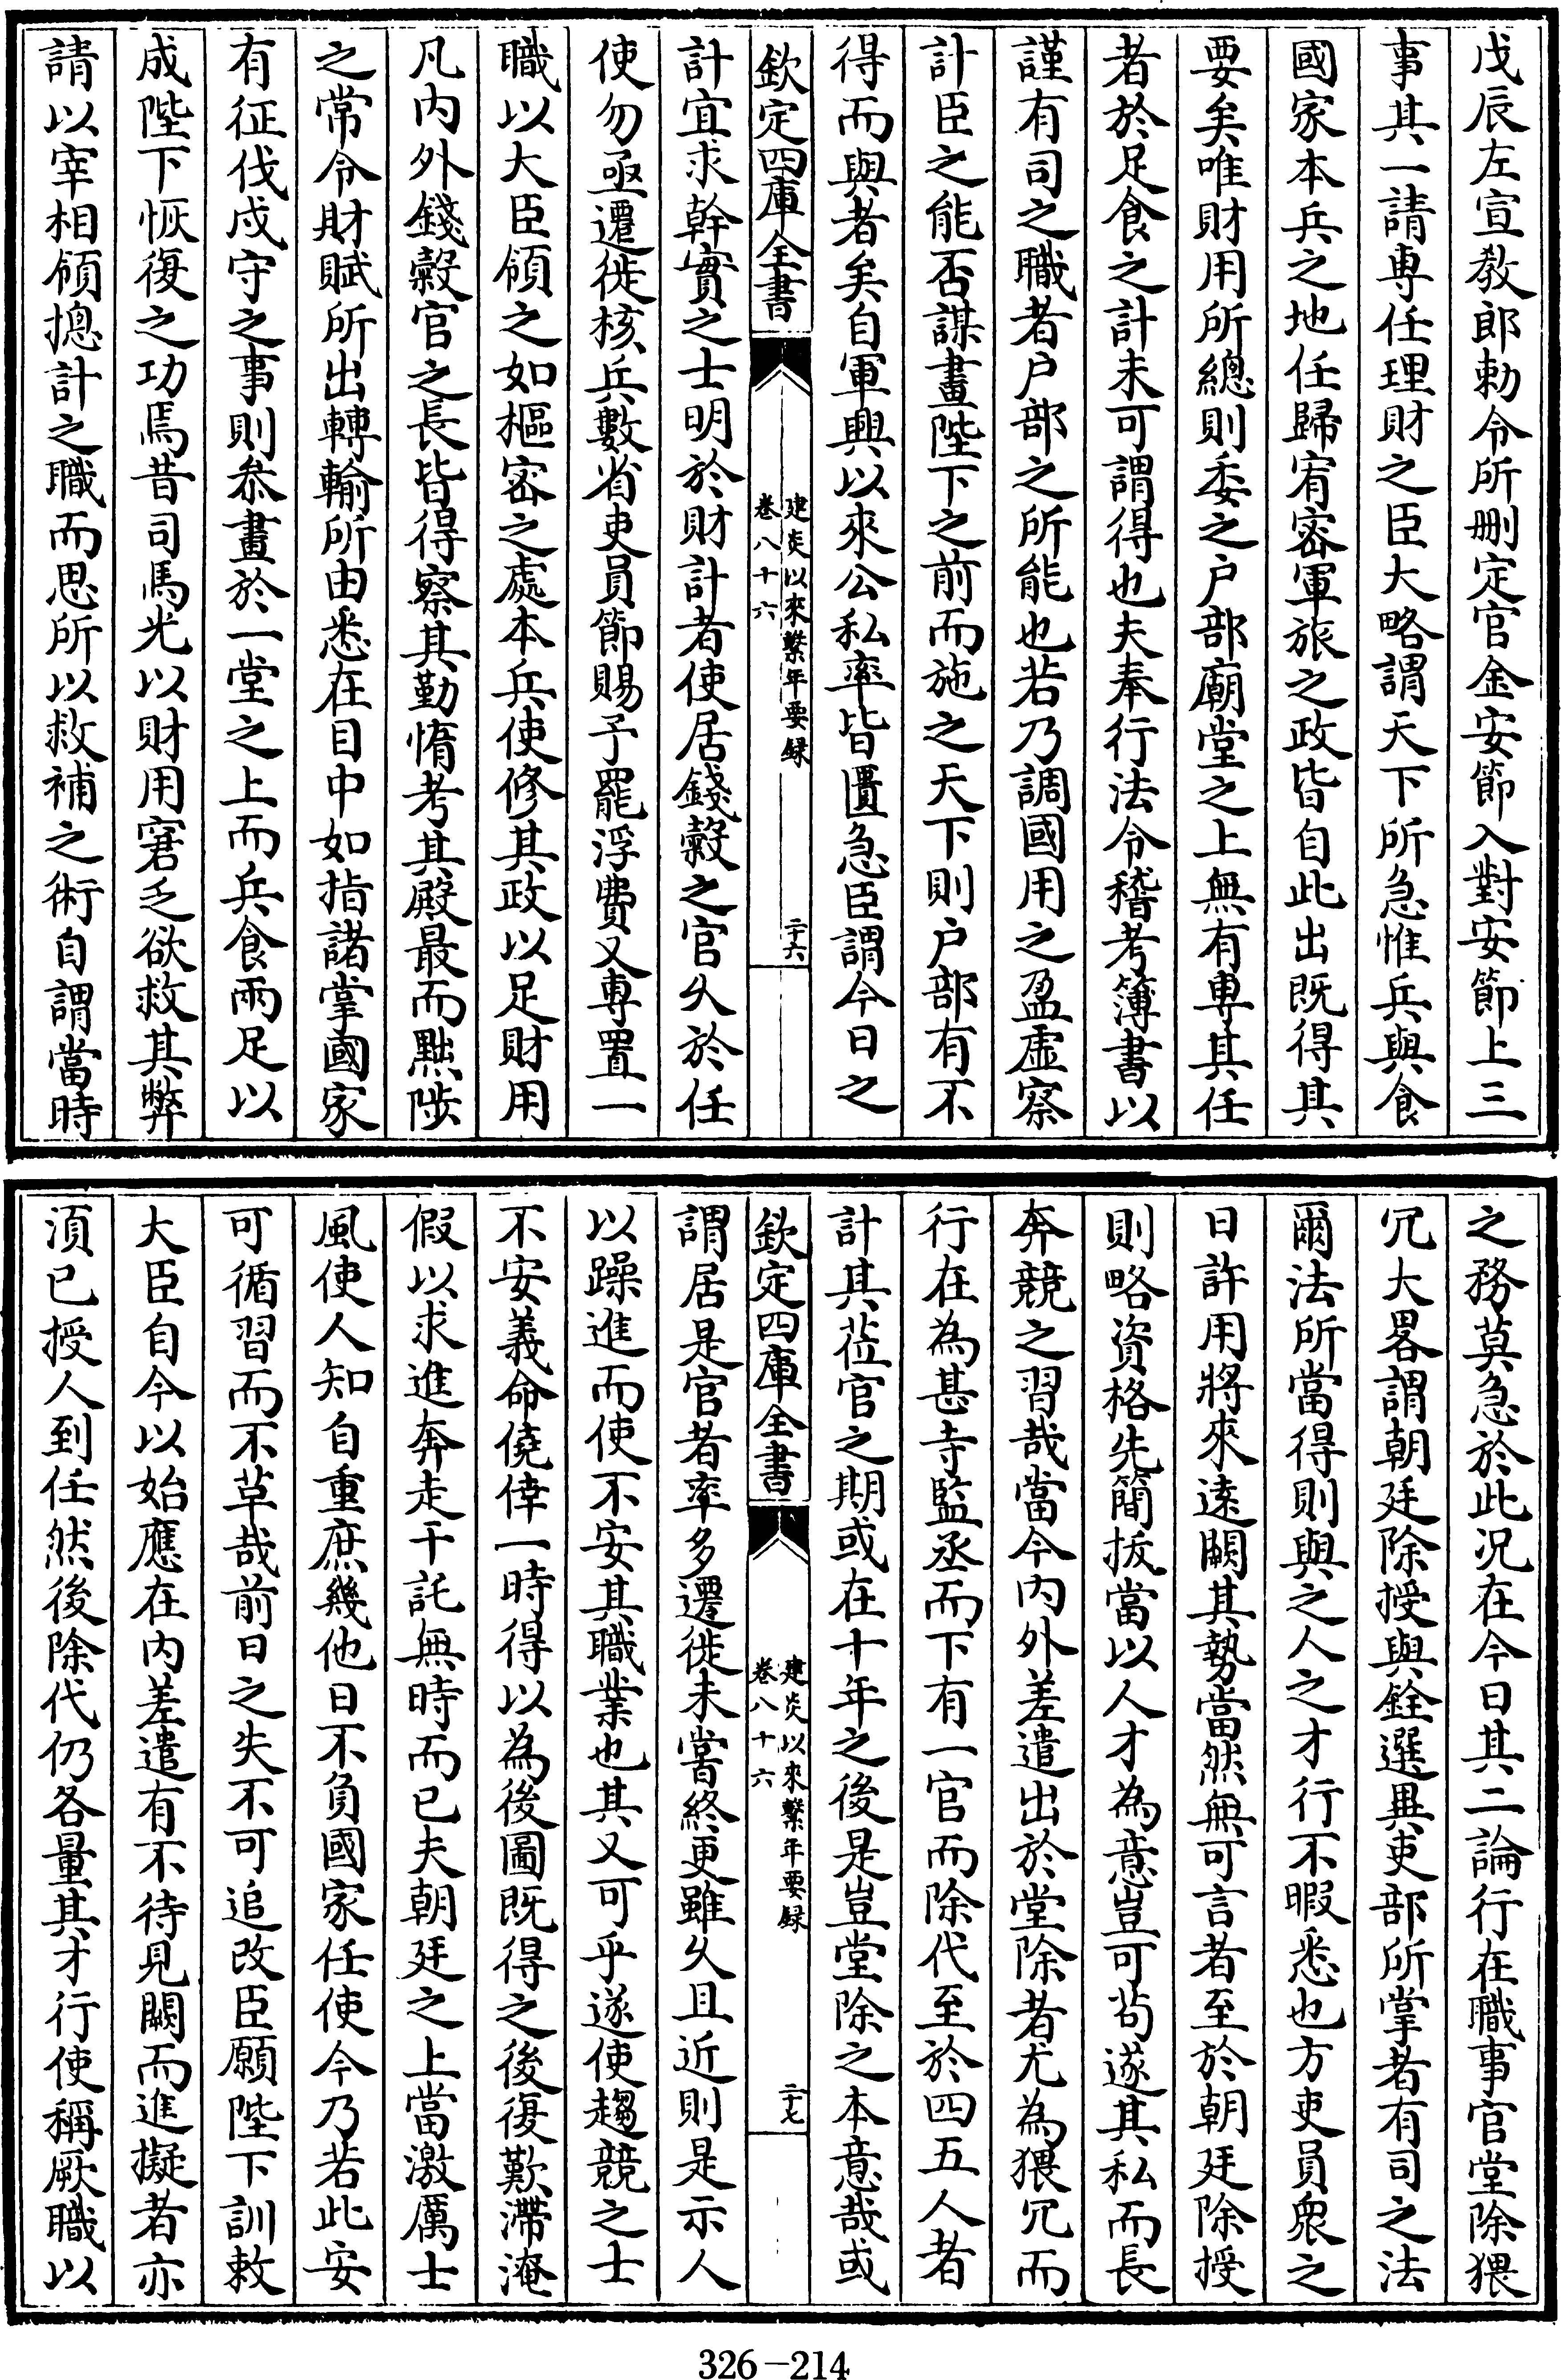 戊辰左宣敎郎勅令所刪定官金安節入對安節上三
事其一請專任理財之臣大略謂天下所急惟兵與食
國家本兵之地任歸宥密軍旅之政皆自此出既得其
要矣唯財用所總則委之户部廟堂之上無有專其任
者於足食之計未可謂得也夫奉行法令稽考簿書以
謹有司之職者户部之所能也若乃調國用之盈虛察
計臣之能否謀畫陛下之前而施之天下則户部有不
得而與者矣自軍興以來公私率皆匱急臣謂今日之
欽定四庫全書
建炎以來繫年要録
卷八十六
二十六
計宜求幹實之士明於財計者使居錢穀之官乆於任
使勿亟遷徙核兵數省吏員節賜予罷浮費又專置一
職以大臣領之如樞密之處本兵使修其政以足財用
凡內外錢穀官之長皆得察其勤惰考其殿最而黜陟
之常令財賦所出轉輸所由悉在目中如指諸掌國家
有征伐戍守之事則叅畫於一堂之上而兵食兩足以
成陛下恢復之功焉昔司馬光以財用窘乏欲救其弊
請以宰相領摠計之職而思所以救補之術自謂當時
之務莫急於此况在今日其二論行在職事官堂除猥
冗大畧謂朝廷除授與銓選異吏部所掌者有司之法
爾法所當得則與之人之才行不暇悉也方吏員衆之
日許用將來遠闕其勢當然無可言者至於朝廷除授
則略資格先簡拔當以人才為意豈可苟遂其私而長
奔競之習哉當今內外差遣出於堂除者尤為猥冗而
行在為甚寺監丞而下有一官而除代至於四五人者
計其莅官之期或在十年之後是豈堂除之本意哉或
欽定四庫全書
建炎以來繫年要録
卷八十六
二十七
謂居是官者率多遷徙未嘗終更雖乆且近則是示人
以躁進而使不安其職業也其又可乎遂使趨競之士
不安義命僥倖一時得以為後圖既得之後復歎滯淹
假以求進奔走干託無時而已夫朝廷之上當激厲士
風使人知自重庶幾他日不負國家任使今乃若此安
可循習而不革哉前日之失不可追改臣願陛下訓敕
大臣自今以始應在內差遣有不待見闕而進擬者亦
湏已授人到任然後除代仍各量其才行使稱厥職以
326-214